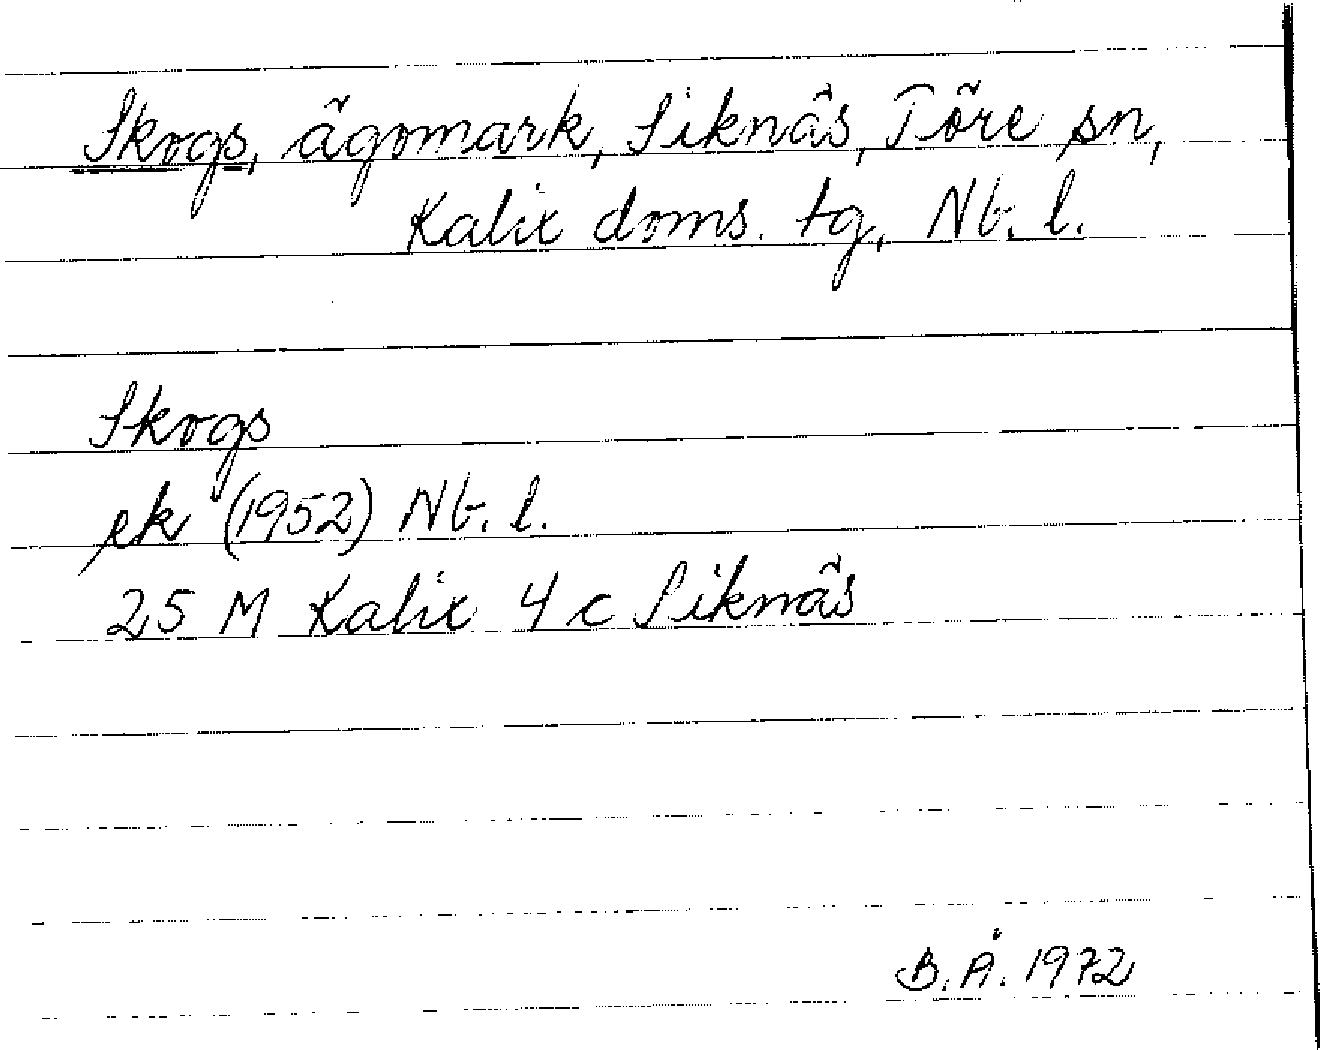 Skogs, ägomark, Siknäs, Töre sn,
Kalix doms. tg, Nb. l.
Skogs
ek (1952) Nb. l.
25 M Kalix 4 c Siknäs
B. Å. 1972